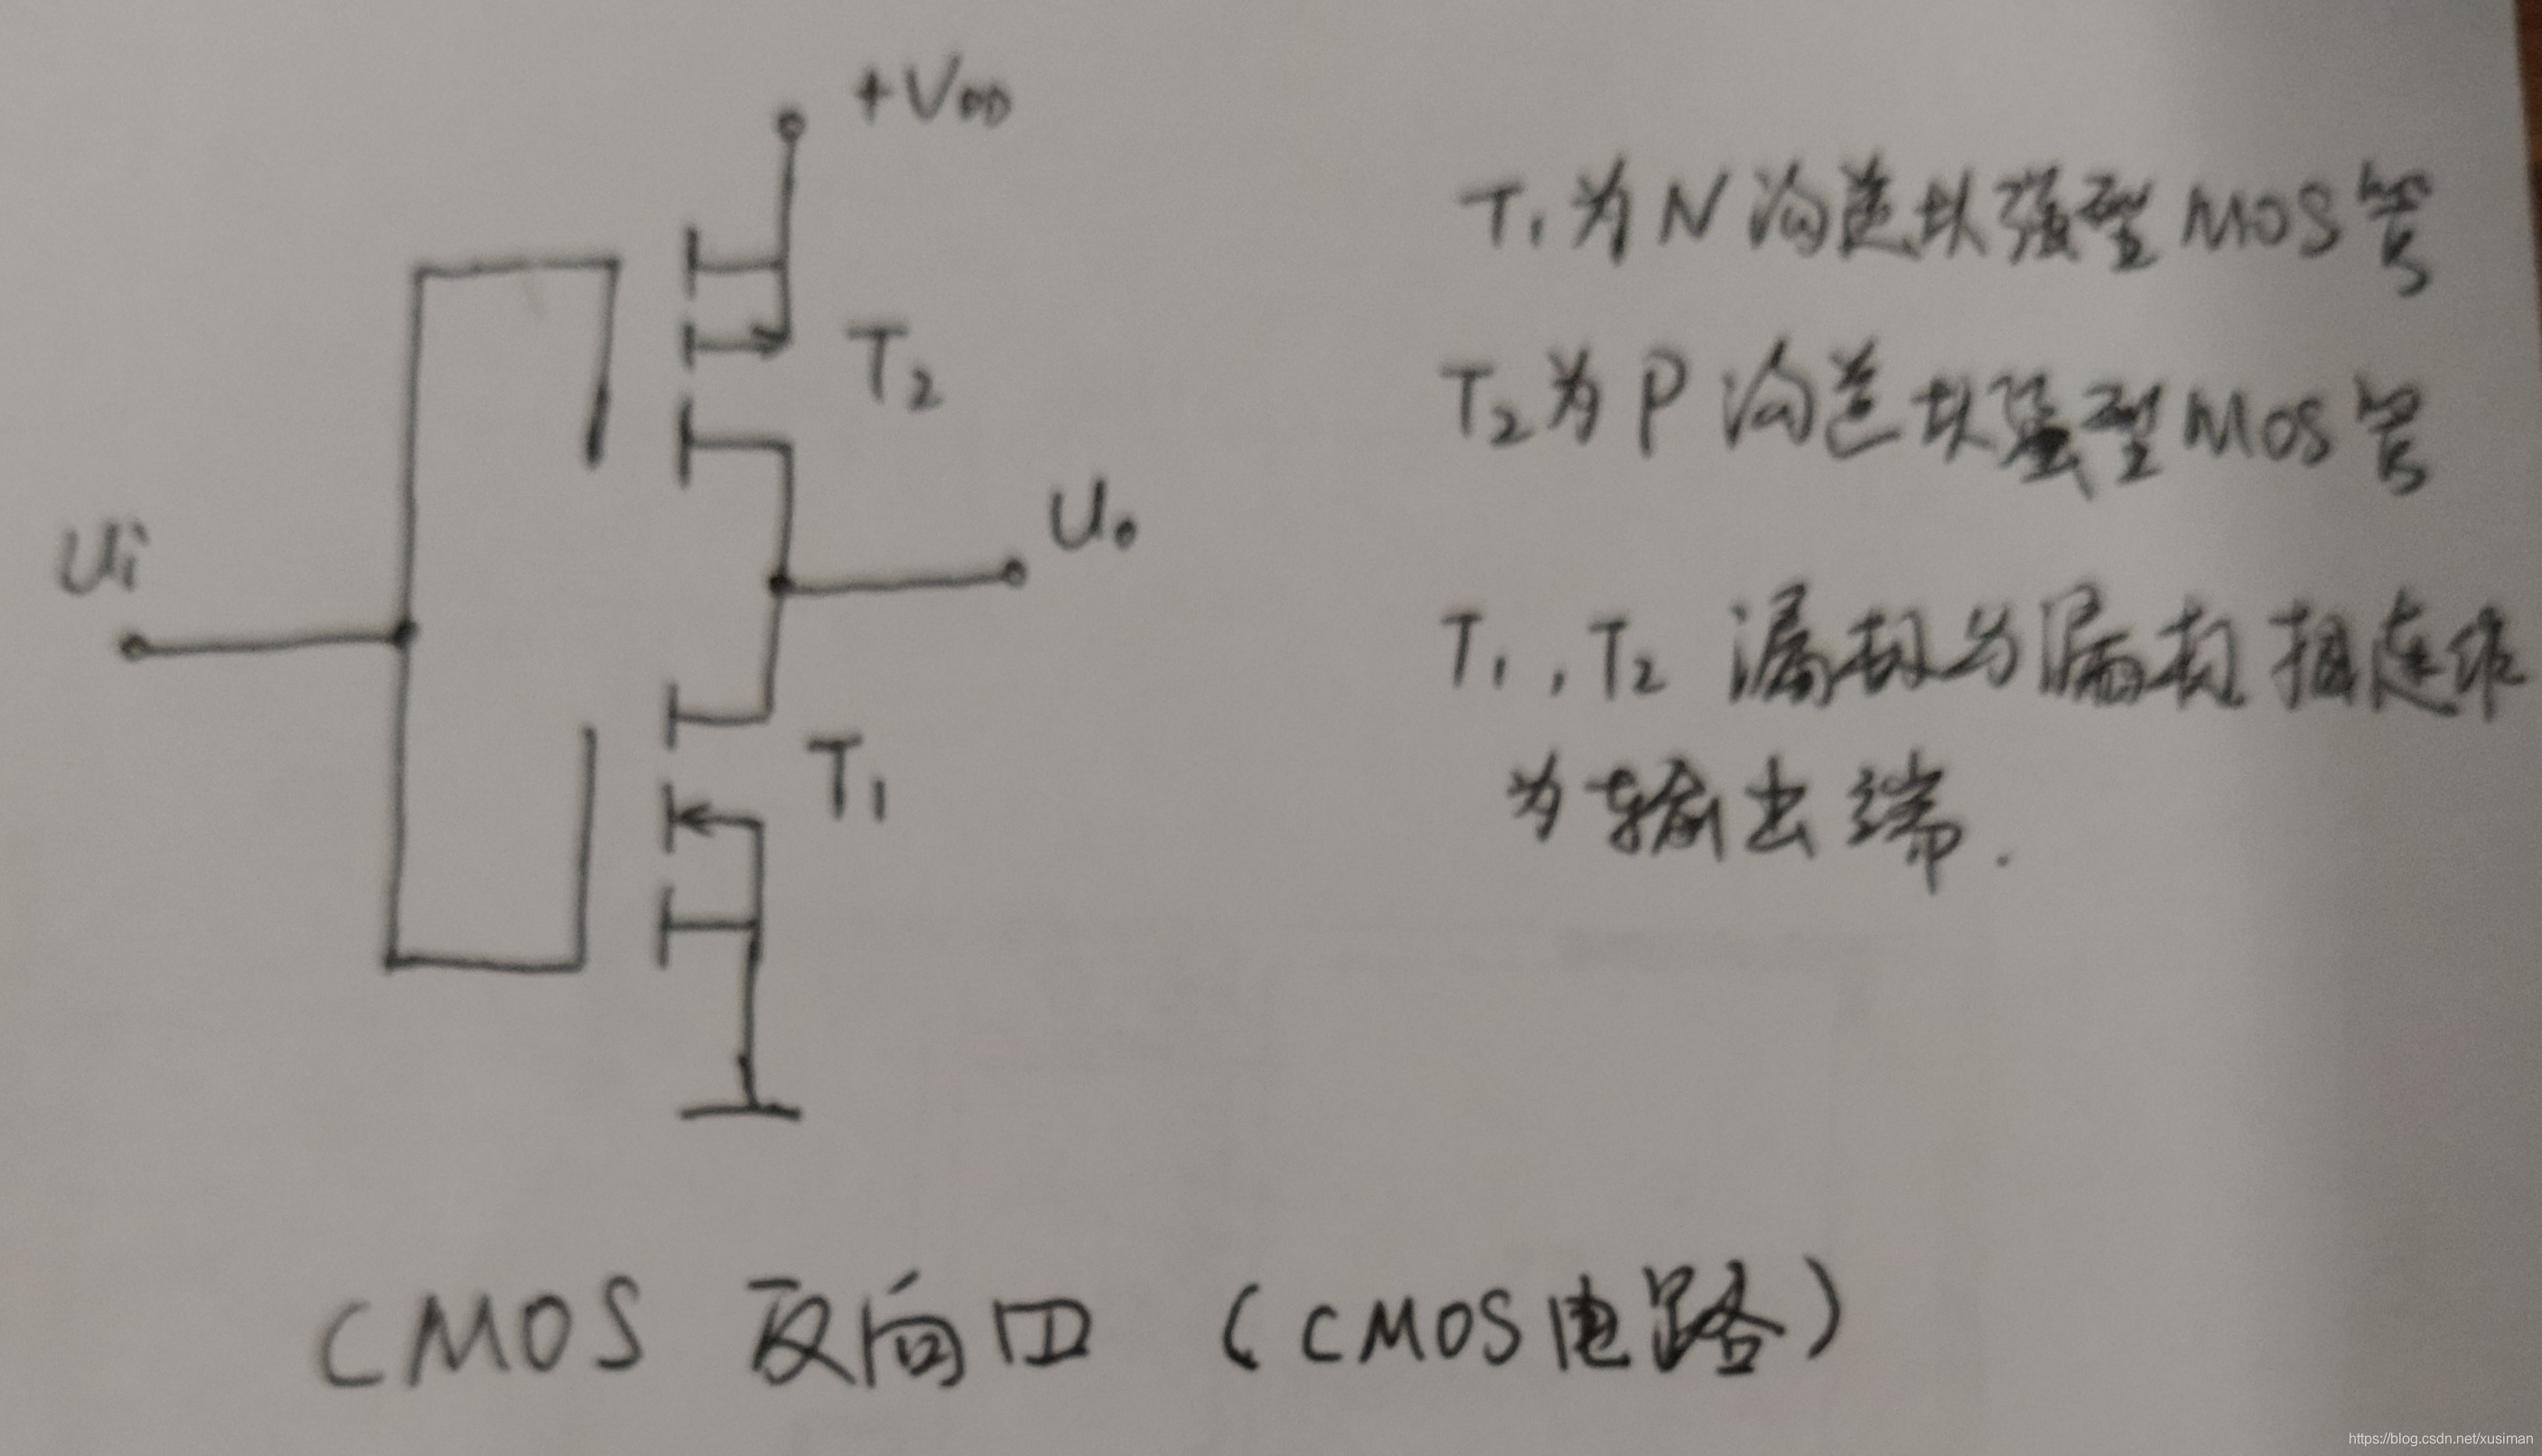 +VDD
T2
Ui
Uo
T1
T1为N沟道增强型MOS管
T2为P沟道增强型MOS管
T1,T2 漏极与漏极相连作
为输出端.
CMOS 反向 (CMOS电路)
https://blog.csdn.net/xusiman